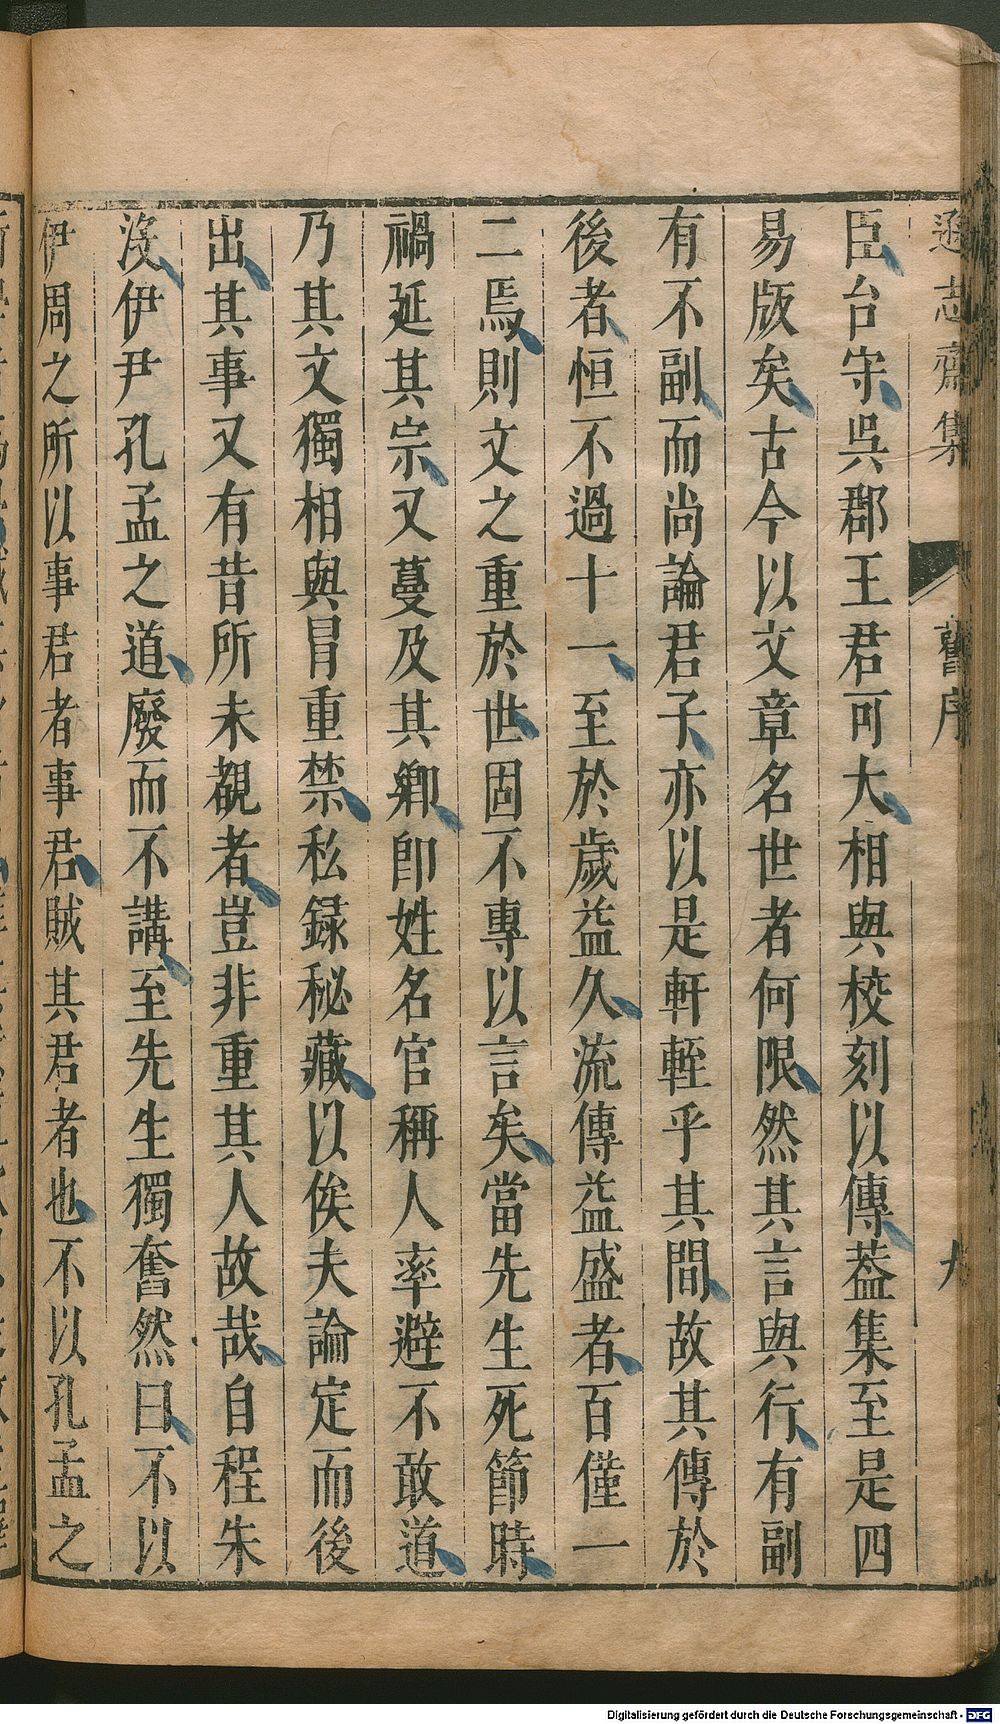 遜志齋集 舊序 九
臣台守吳郡王君可大相與校刻以傳葢集至是四
易版矣古今以文章名世者何限然其言與行有副
有不副而尚論君子亦以是軒輊乎其間故其傳於
後者恒不過十一至於歲益久流傳益盛者百僅一
二焉則文之重於世固不專以言矣當先生死節時
禍延其宗又蔓及其鄉即姓名官稱人率避不敢道
乃其文獨相與冒重禁私録秘藏以俟夫論定而後
出其事又有昔所未覩者豈非重其人故哉自程朱
沒伊尹孔孟之道廢而不講至先生獨奮然曰不以
伊周之所以事君者事君賊其君者也不以孔孟之
Digitalisierung gefördert durch die Deutsche Forschungsgemeinschaft - DFG